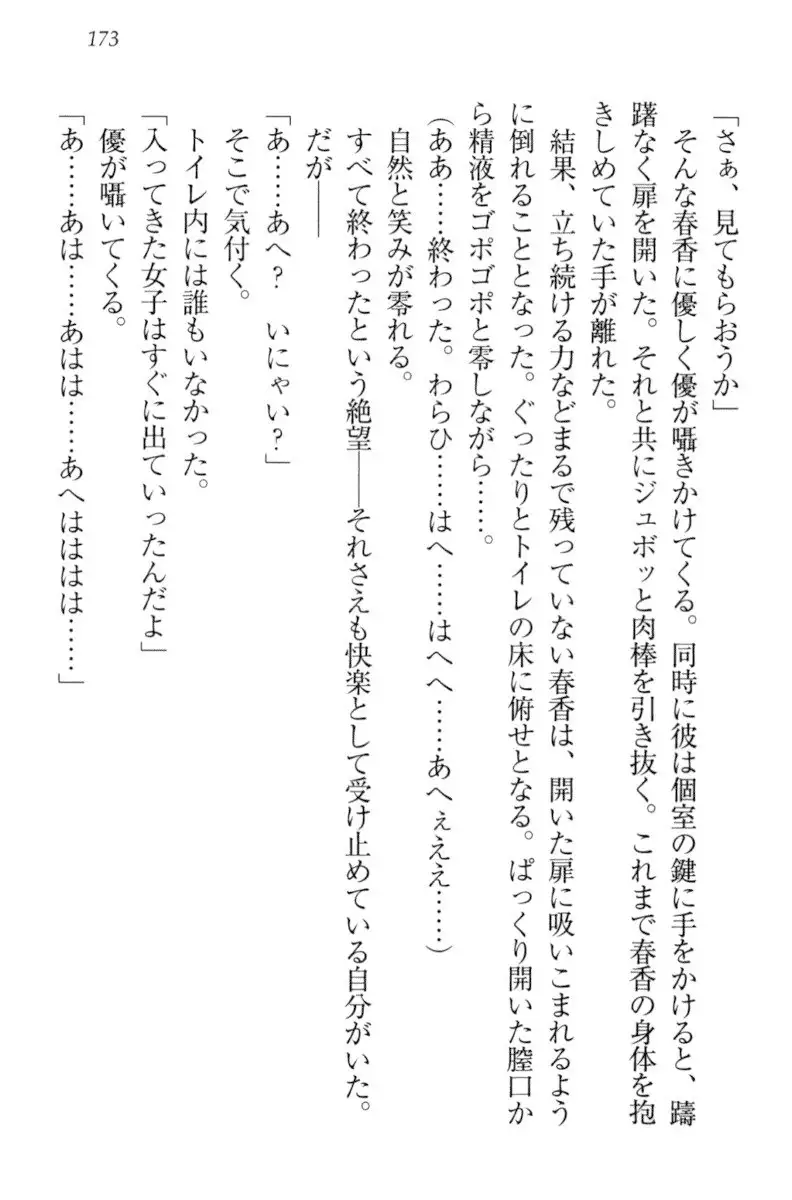 173
「さぁ、見てもらおうか」
そんな春香に優しく優が囁きかけてくる。同時に彼は個室の鍵に手をかけると、躊
躇なく扉を開いた。それと共にジュボッと肉棒を引き抜く。これまで春香の身体を抱
きしめていた手が離れた。
結果、立ち続ける力などまるで残っていない春香は、開いた扉に吸いこまれるよう
に倒れることとなった。ぐったりとトイレの床に俯せとなる。ぱっくり開いた膣口か
ら精液をゴポゴポと零しながら……。
（ああ……終わった。わらひ……はへ……はへへ……あへぇええ……）
自然と笑みが零れる。
すべて終わったという絶望――それさえも快楽として受け止めている自分がいた。
だが――
「あ……あへ？　いにゃい？」
そこで気付く。
トイレ内には誰もいなかった。
「入ってきた女子はすぐに出ていったんだよ」
優が囁いてくる。
「あ……あは……あはは……あへはははは……」